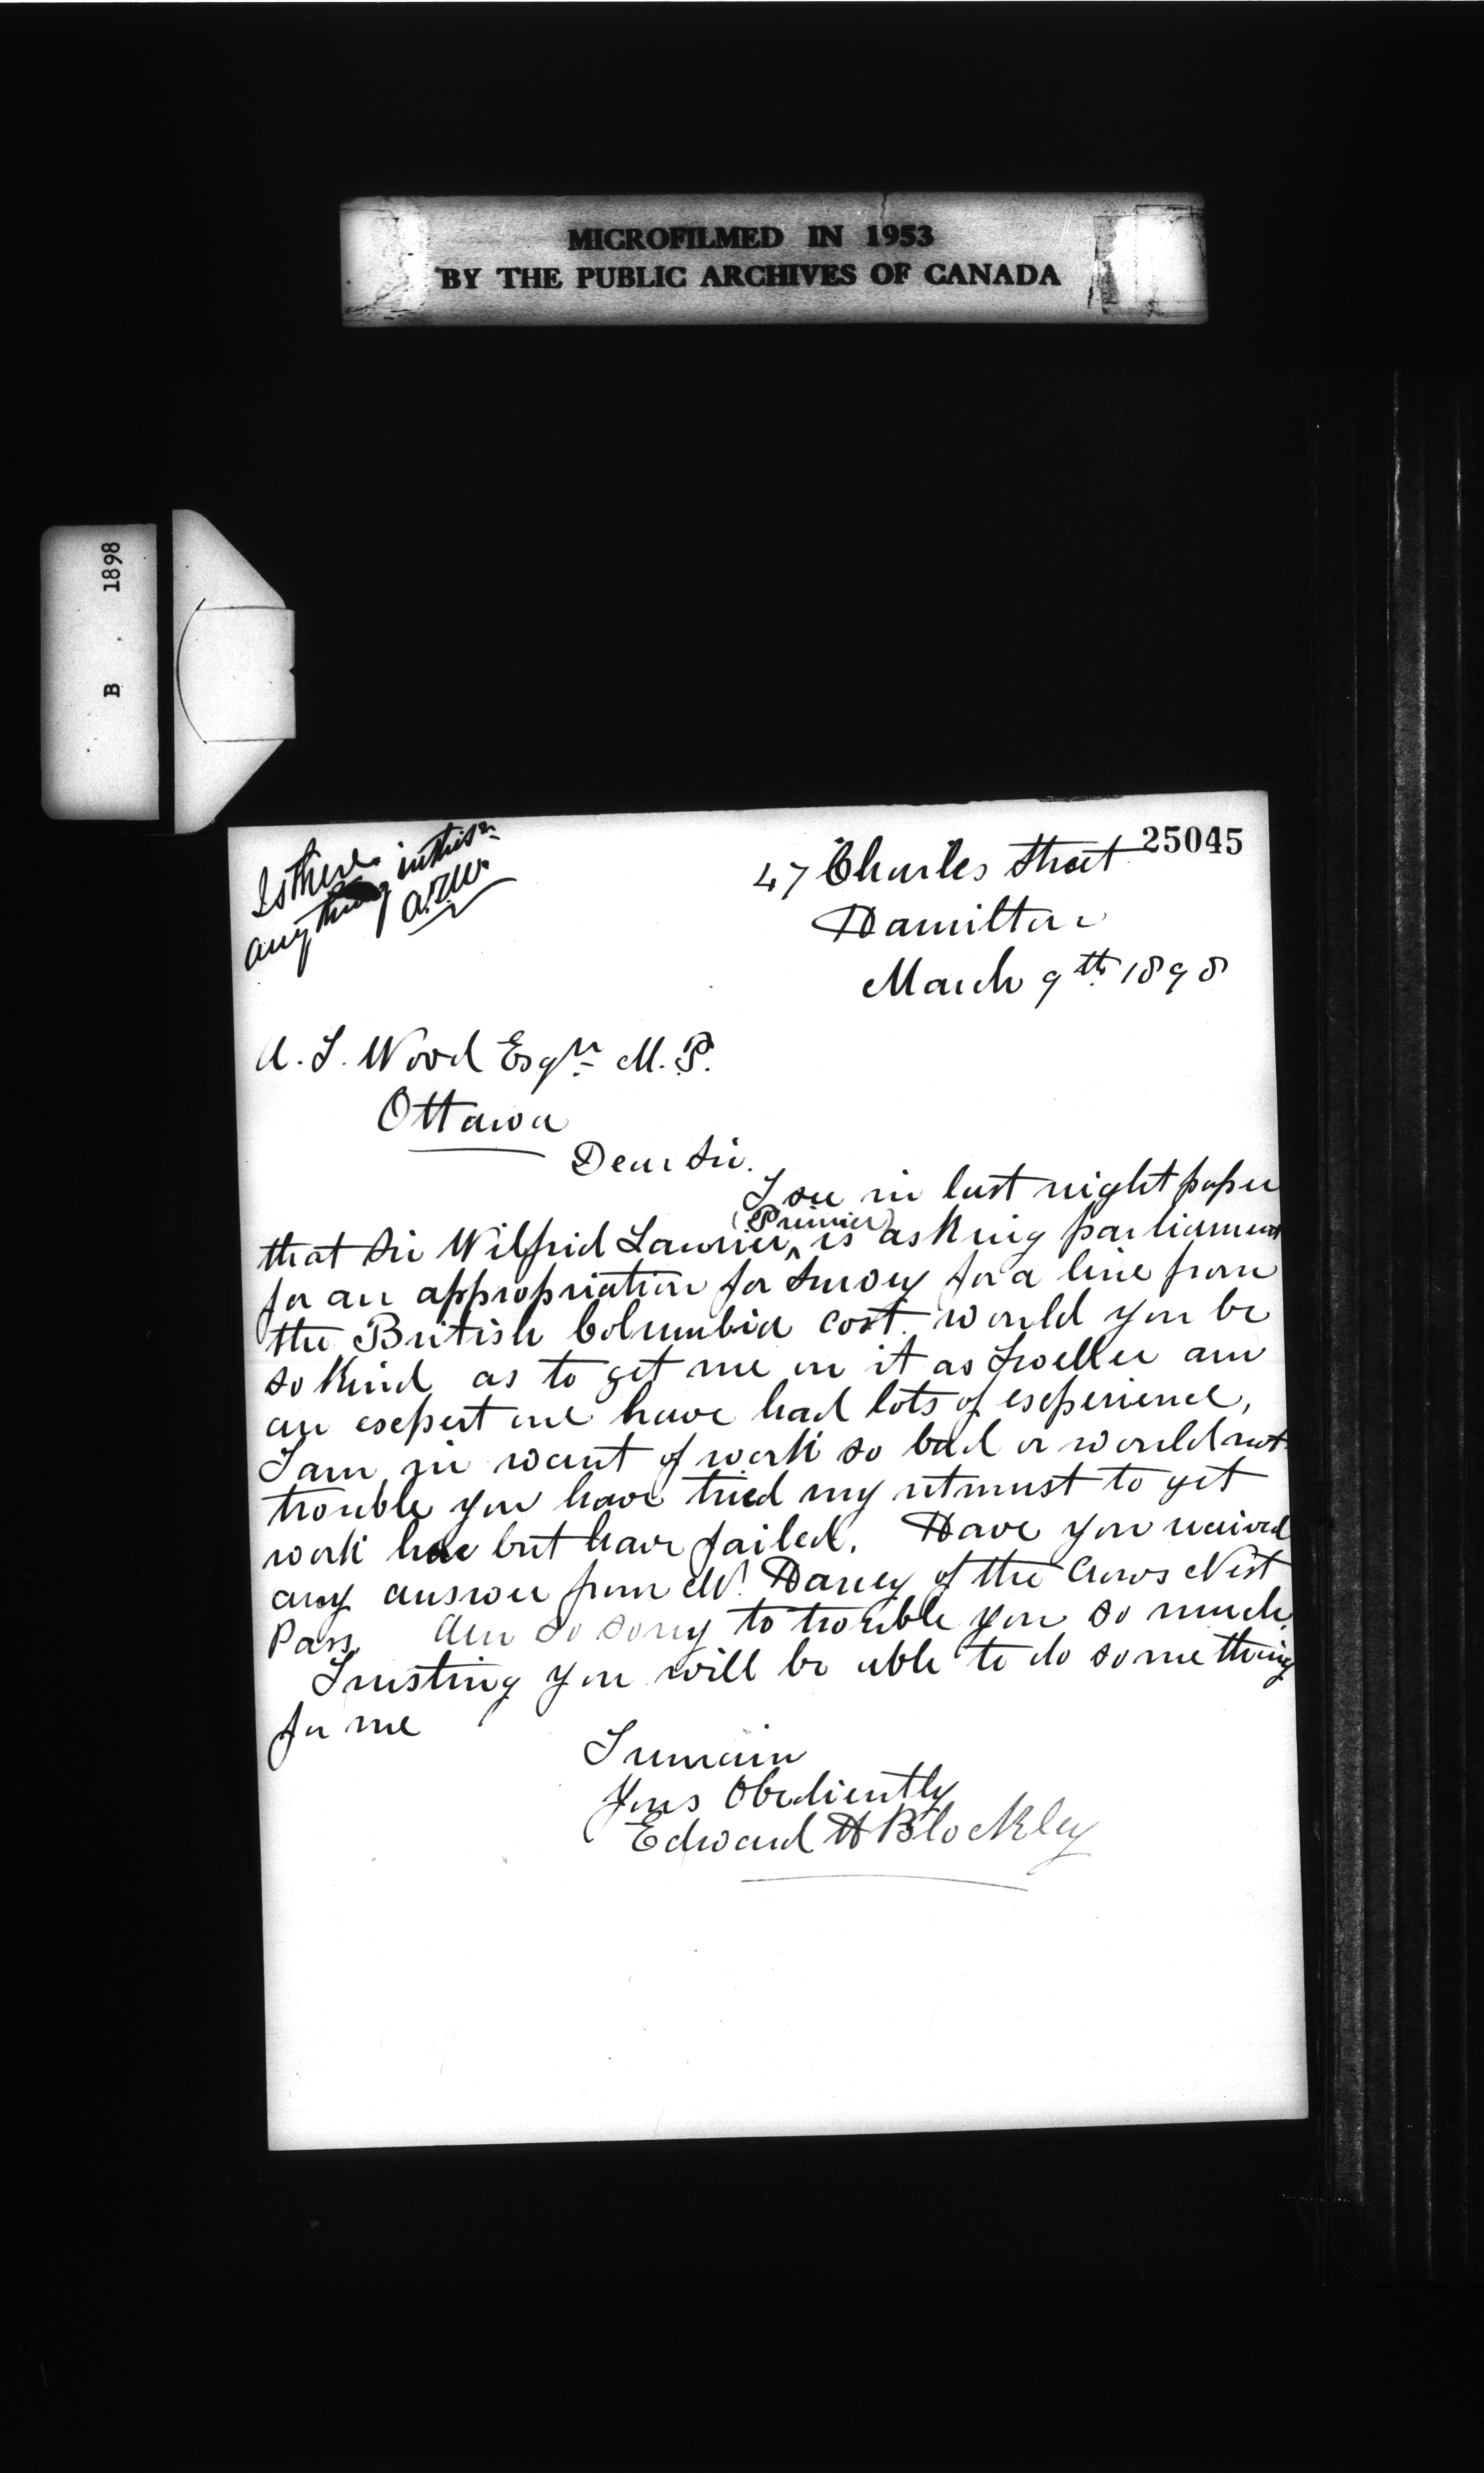 MICROFILMED IN 1953
BY THE PUBLIC ARCHIVES OF CANADA
B . 1898
25045
Is there
anything in this?
A.T.W.
47 Charles Street
Hamilton
March 9th 1898
A. T. Wood Esqr M. P.
Ottawa
Dear Sir.
I see in last night paper
that Sir Wilfrid Laurier (Premier) is asking parliament
for an appropriation for Survey for a line from
the British Columbia cost. would you be
so kind as to get me on it as Leveller am
an expert one have had lots of experience,
I am in want of work so bad or would not
trouble you have tried my utmust to get
work here but have failed. Have you received
any answer from Mr. Haney of the Crows Nest
Pass Am so sorry to trouble you so much.
Trusting you will be able to do something
for me
I remain
Yours Obediently
Edward H Blockley